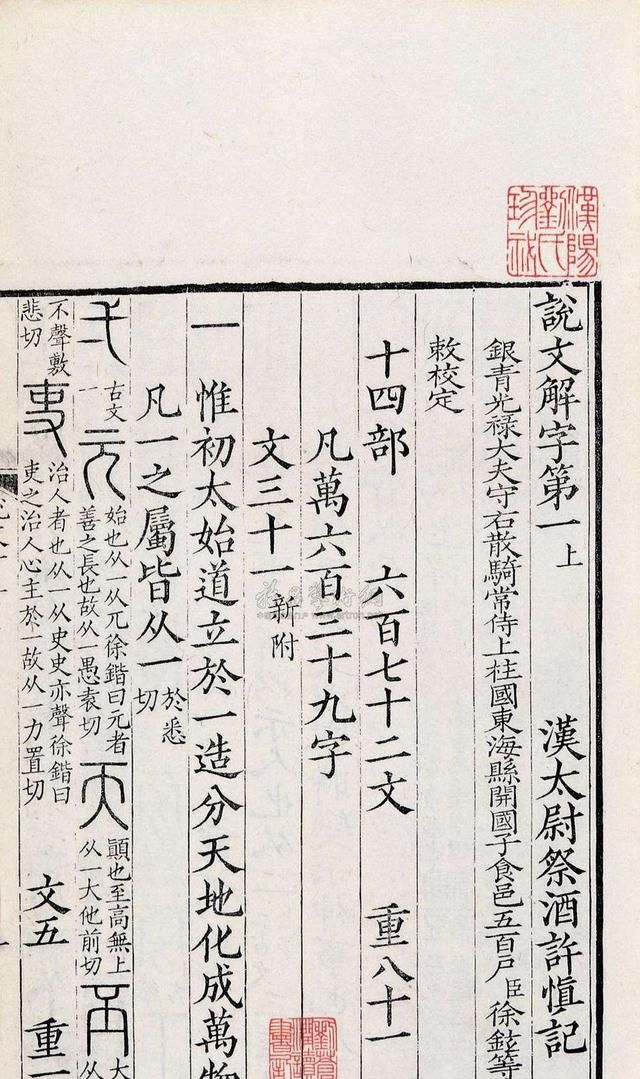 漢陽
劉氏
說文解字第一上 漢太尉祭酒許慎記
銀青光祿大夫守右散騎常侍上柱國東海縣開國子食邑五百戶臣徐鉉等
敕校定
十四部 六百七十二文 重八十一
凡萬六百三十九字
文三十一新附
一 惟初太始道立於一造分天地化成萬物
凡一之屬皆从一於悉切
弌古文一 元始也从一从兀徐鍇曰元者善之長也故从一愚袁切 天顛也至高無上从一大他前切 丕大从
不聲敷悲切 吏治人者也从一从史史亦聲徐鍇曰吏之治人心主於一故从一力置切 文五 重一